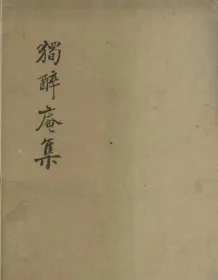 獨醉庵集